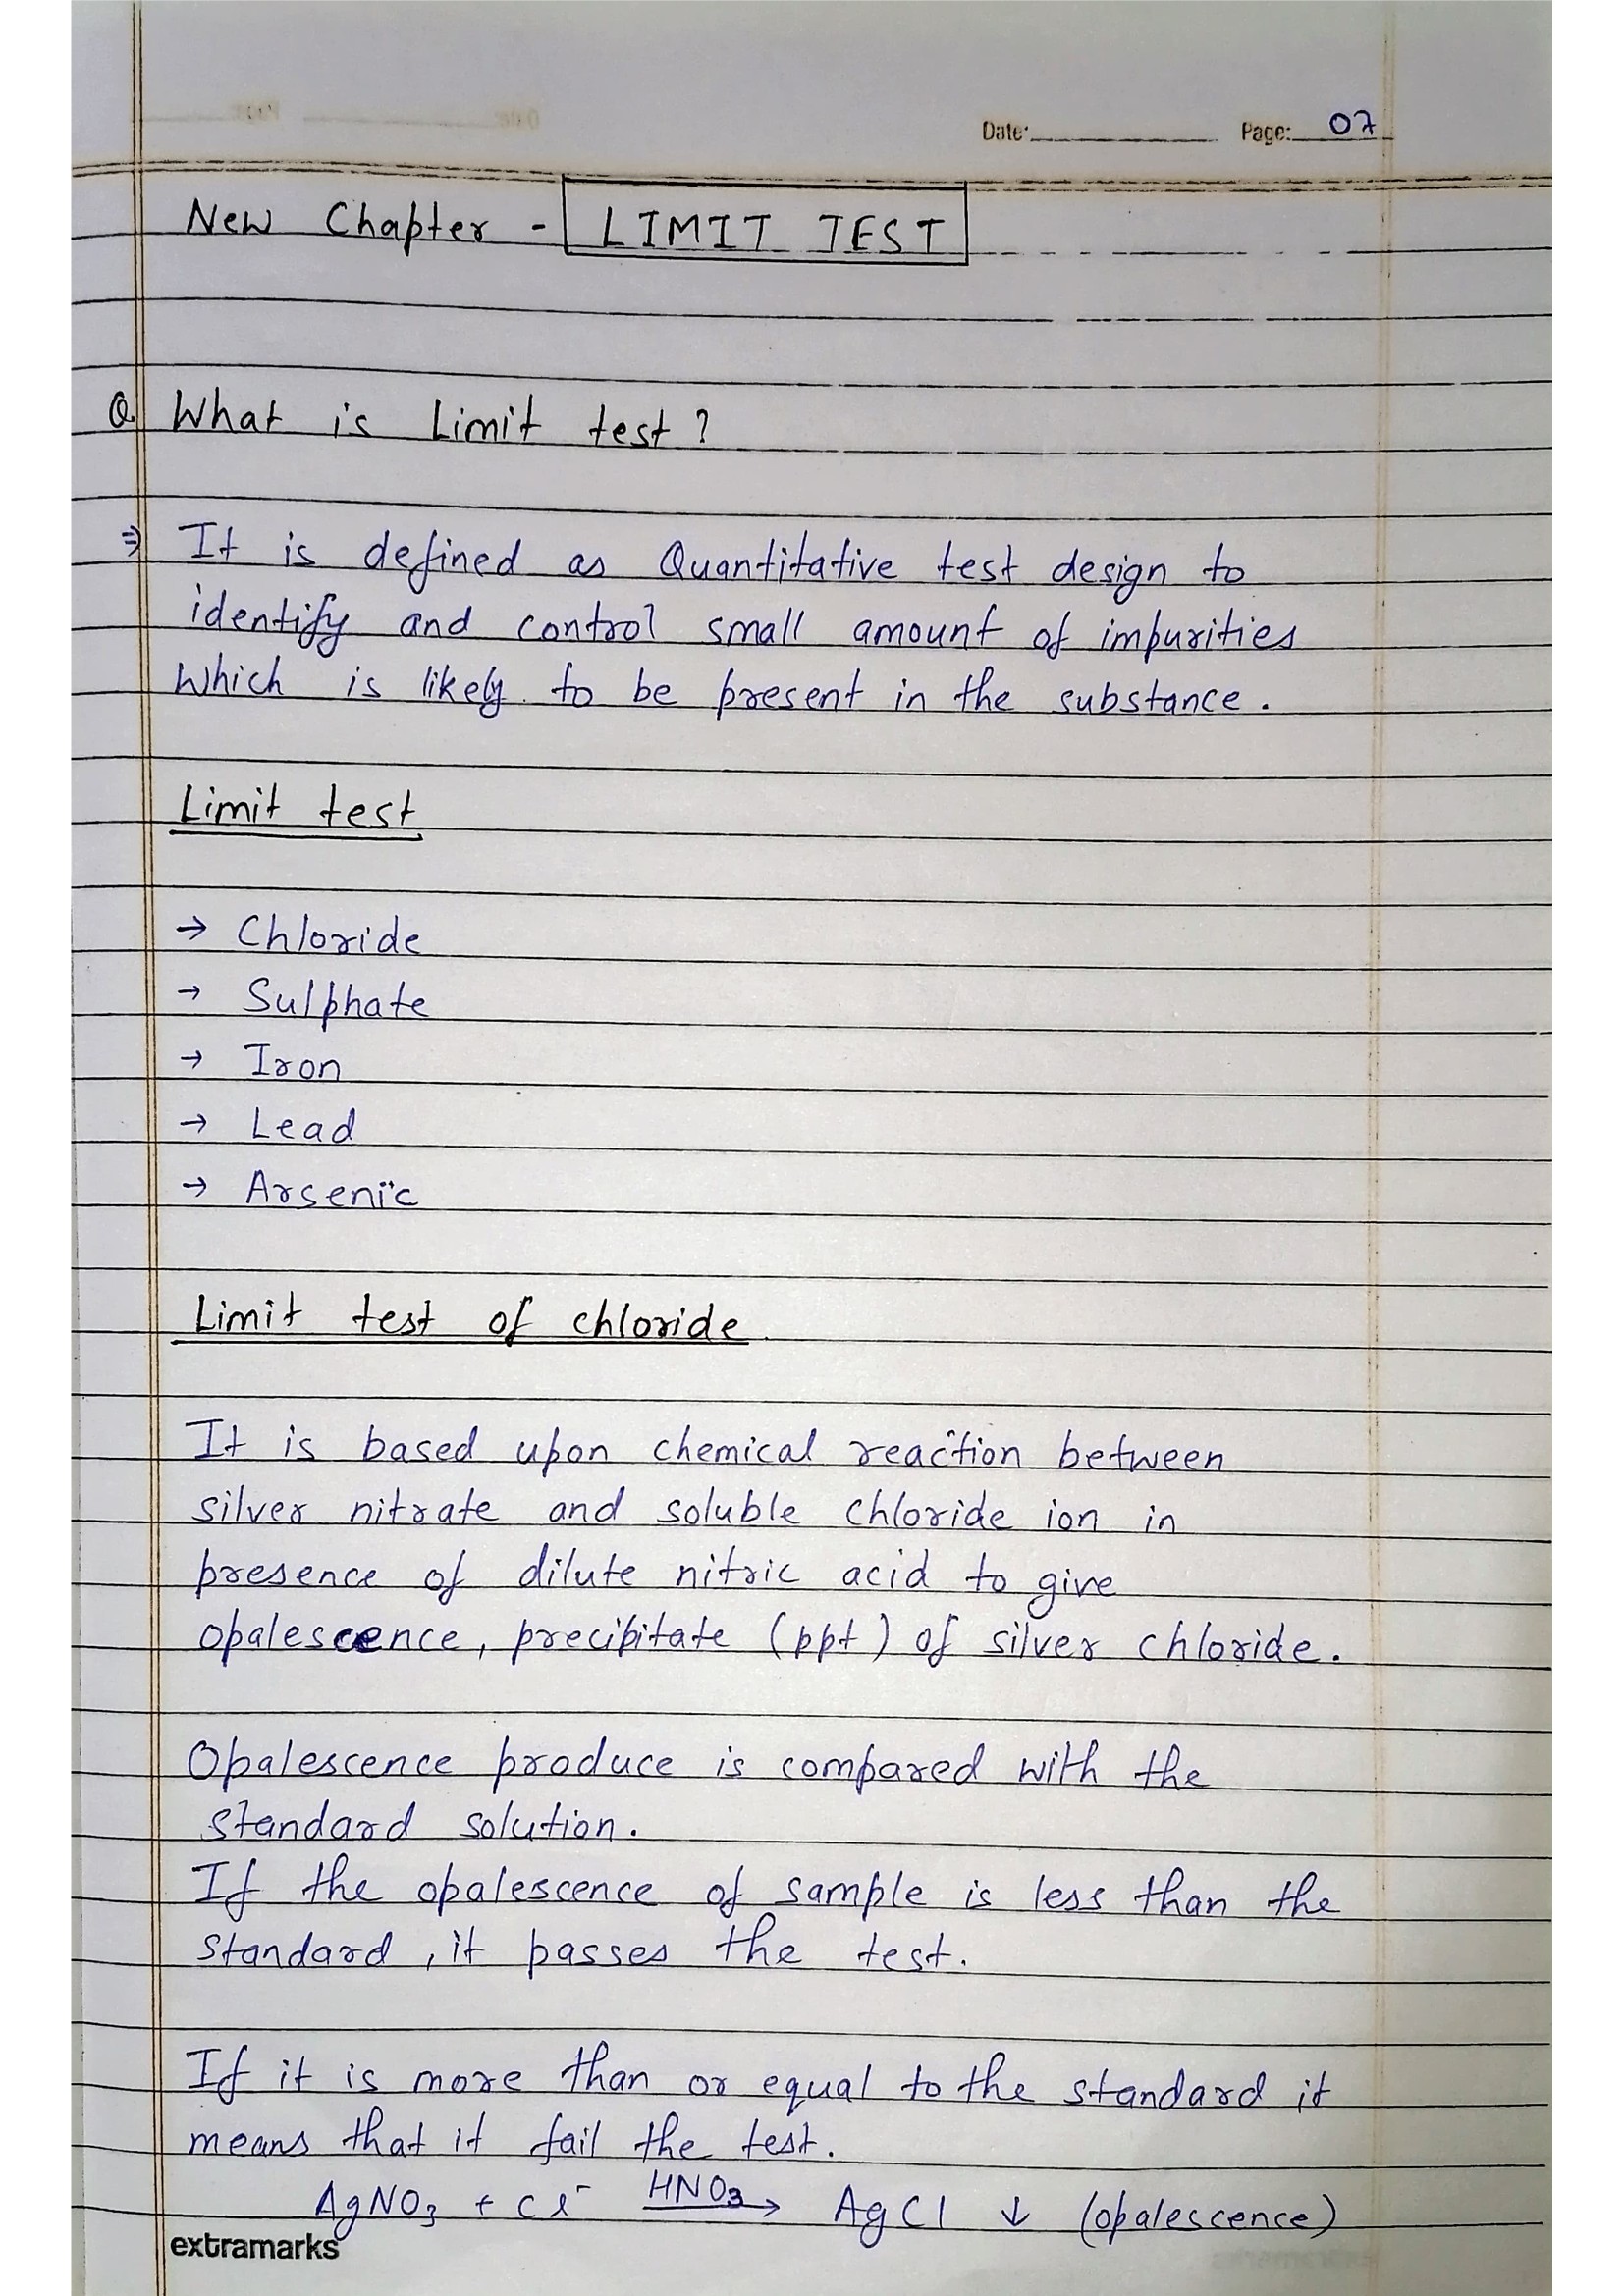 Date: Page: 07
New Chapter - LIMIT TEST
Q What is Limit test ?
⇒ It is defined as Quantitative test design to
identify and control small amount of impurities
Which is likely to be present in the substance.
Limit test
→ Chloride
→ Sulphate
→ Iron
→ Lead
→ Arsenic
Limit test of chloride
It is based upon chemical reaction between
silver nitrate and soluble chloride ion in
presence of dilute nitric acid to give
opalescence, precipitate (ppt) of silver chloride.
Opalescence produce is compared with the
standard solution.
If the opalescence of sample is less than the
standard, it passes the test.
If it is more than or equal to the standard it
means that it fail the test.
AgNO₃ + Cl⁻ HNO₃→ AgCl ↓ (opalescence)
extramarks